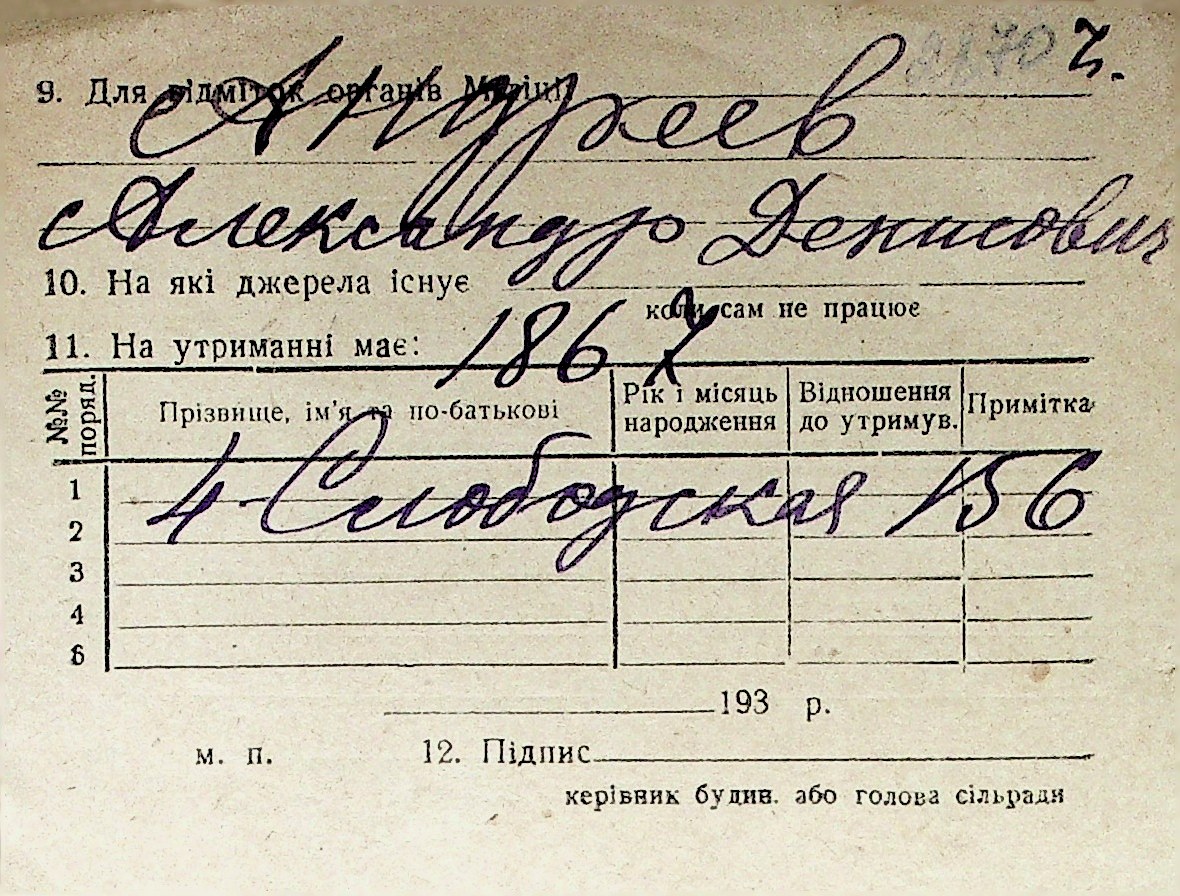 2270 ч.
9. Для відміток органів Міліції
Андреев
Александр Денисович
10. На які джерела існує
коли сам не працює
1867
11. На утриманні має:
№№ поряд. Прізвище, ім'я та по-батькові Рік і місяць народження Відношення до утримув. Примітка
4-Слободская 156
1
2
3
4
5
193 р.
м. п. 12. Підпис
керівник будин. або голова сільради